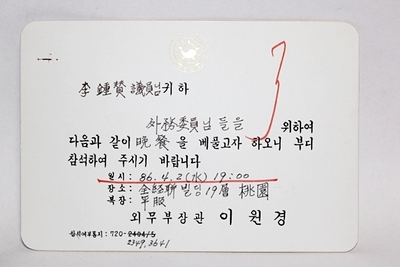 李鍾贊議員님 귀하
外務委員님들을 위하여
다음과 같이 晩餐을 베풀고자 하오니 부디
참석하여 주시기 바랍니다
일시: 86. 4. 2(水) 19:00
장소: 全經聯빌딩 19層 桃園
복장: 平服
외무부장관 이 원 경
참석여부통지: 720-2404/5
2349, 3641